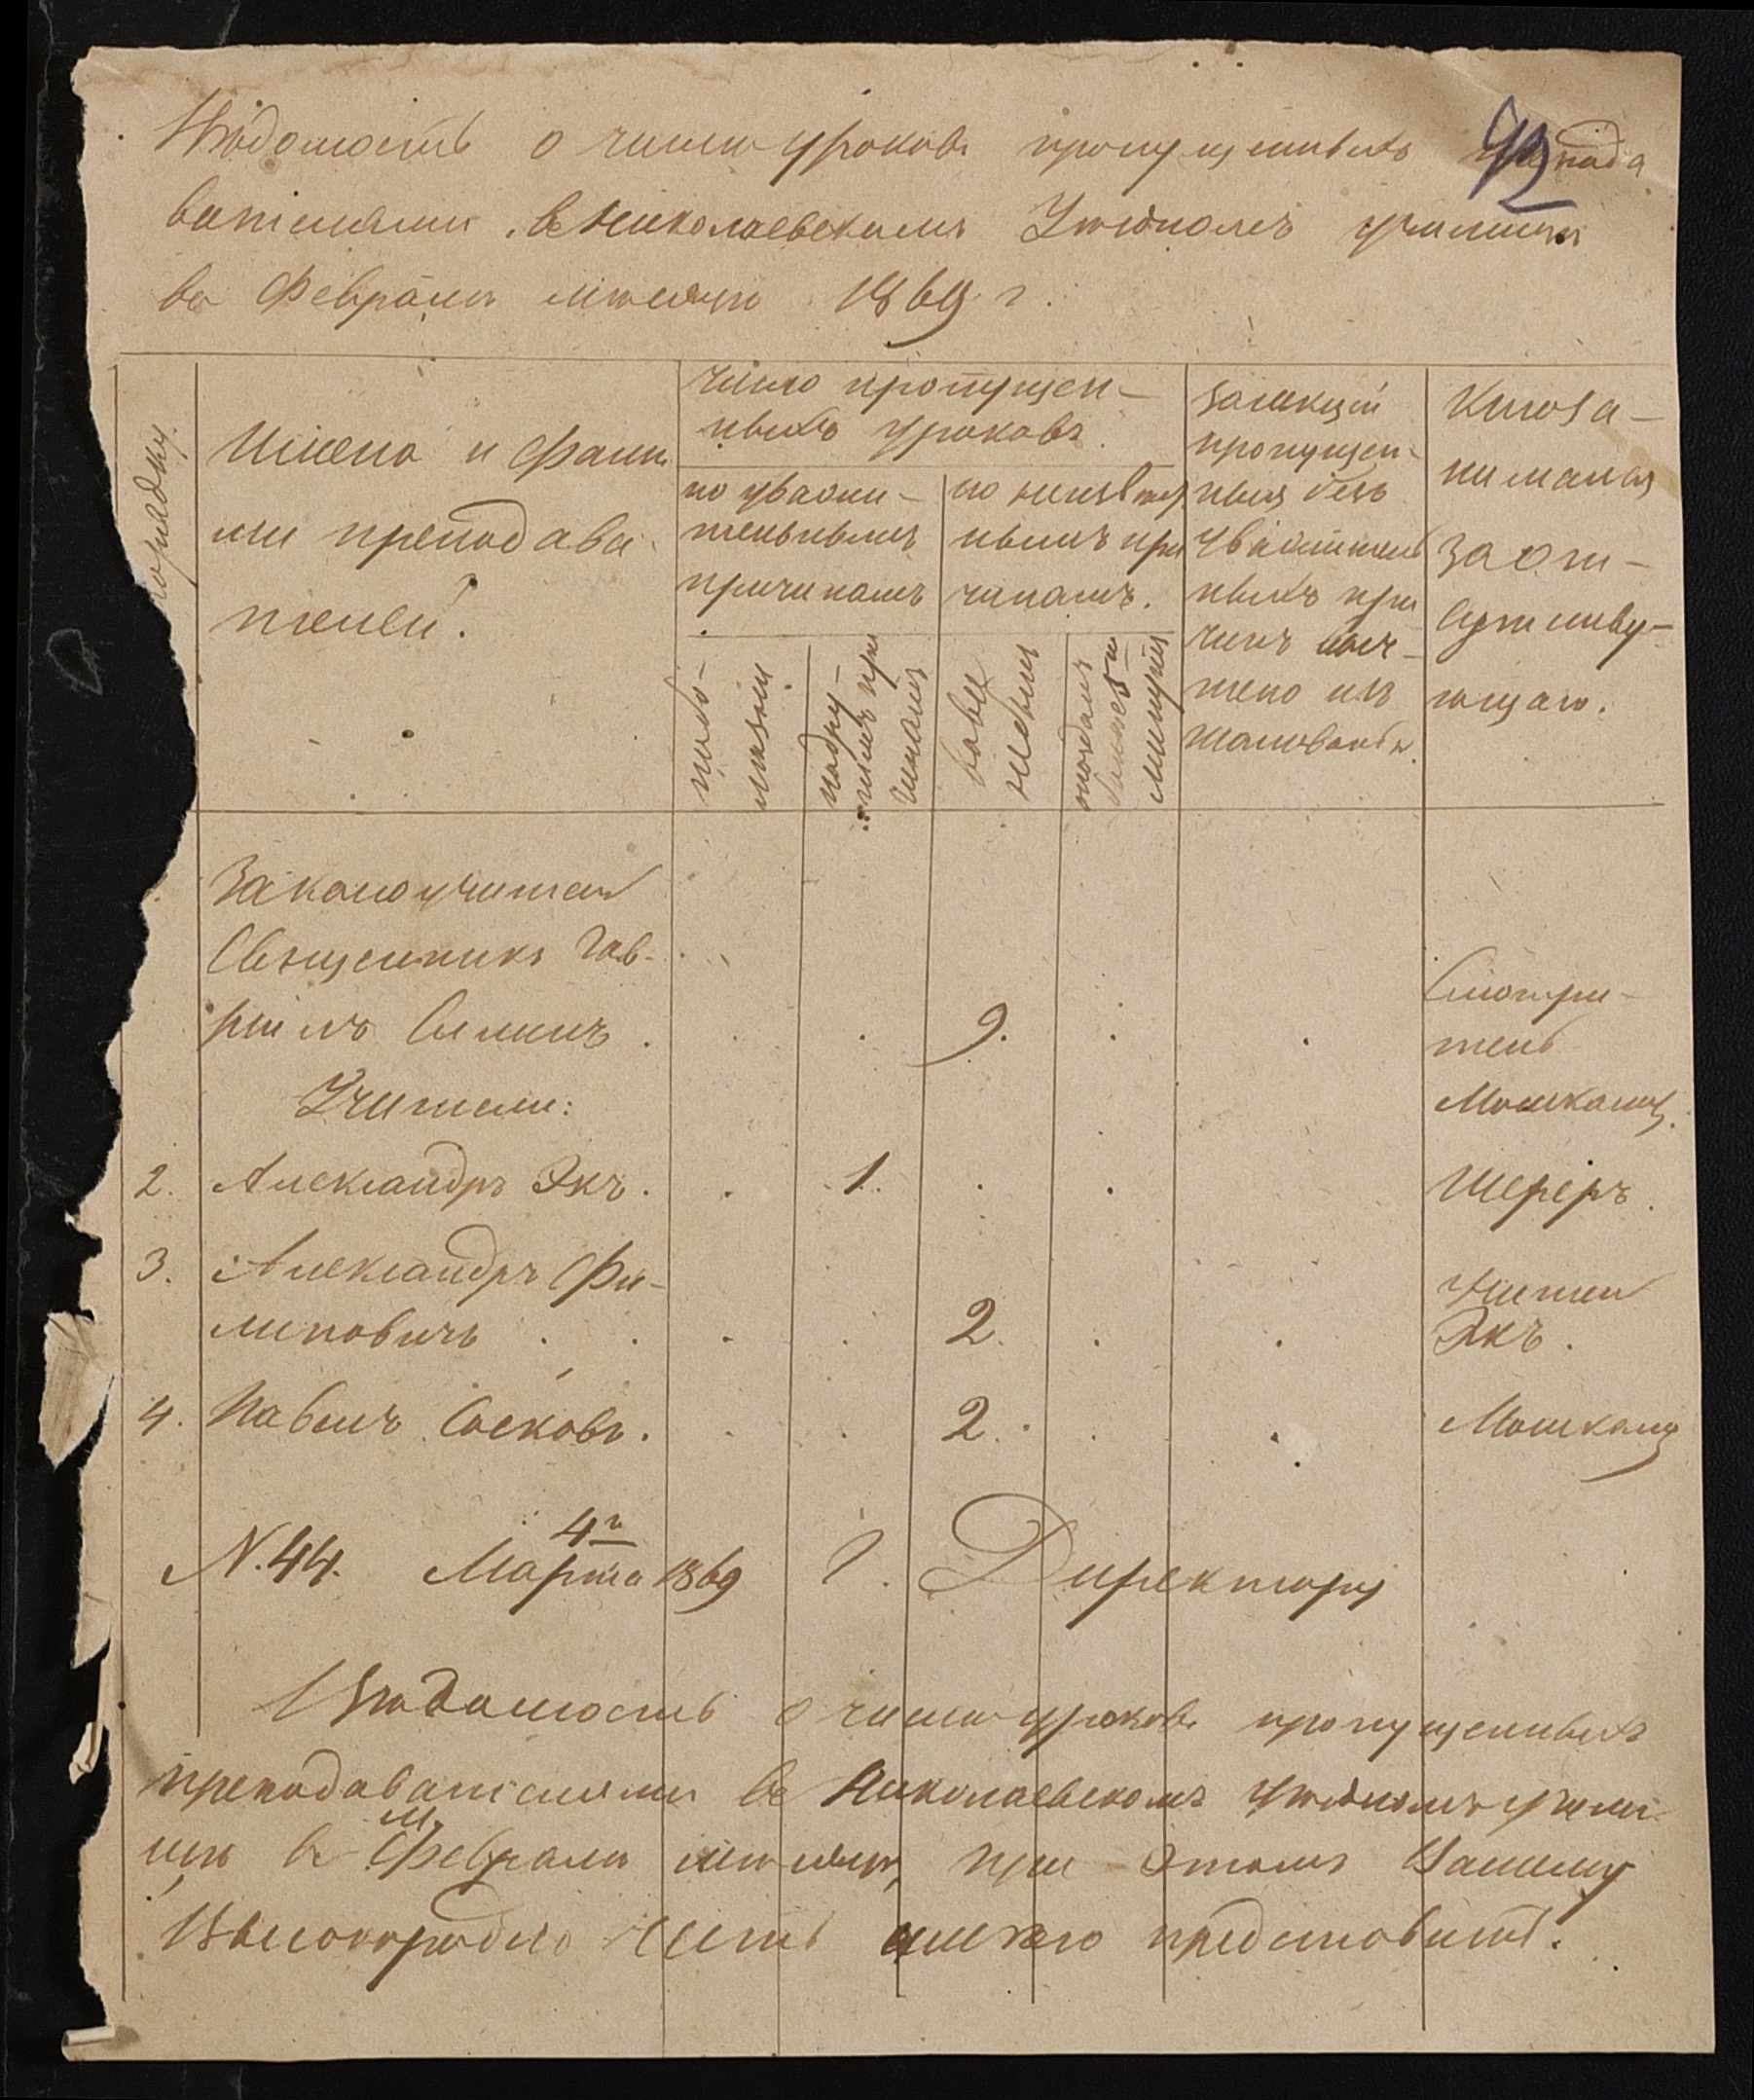 92
Вѣдомость о числѣ уроковъ пропущенныхъ препода
вателями въ Николаевскомъ Уѣздномъ училищѣ
въ Февралѣ мѣсяцѣ 1869 г.
порядку.
Имена и фами
ліи преподава
телей.
Число пропущен-
ныхъ уроковъ.
по уважи-
тельнымъ
причинамъ
по неизвѣст
нымъ при
чинамъ.
по бо-
лѣзни.
по дру-
гимъ при
чинамъ
вовсе
не
минутъ
За лекціи
пропущен-
ныя безъ
уважитель
ныхъ при
чинъ выч-
тено изъ
жалованья.
Кто за-
нималъ
за от-
сутству-
ющаго.
Законоучитель
Священникъ Гав-
ріилъ Синицъ . . . 9. . .
Смотри-
тель
Мошканц.
Учители:
2. Александръ Экъ. . 1. . . Шереръ.
3. Александръ Фи-
липовичъ . . . . 2. . .
Учитель
Экъ.
4. Павелъ Сосковъ. . . 2. . . Мошканц
N. 44. 4го Марта 1869 Г. Директору
Вѣдомость о числѣ уроковъ пропущенныхъ
преподавателями въ Николаевскомъ уѣздномъ учили
щѣ въ м. Февралѣ мѣсяцѣ, при этомъ Вашему
Высокородію честь имѣю представить.